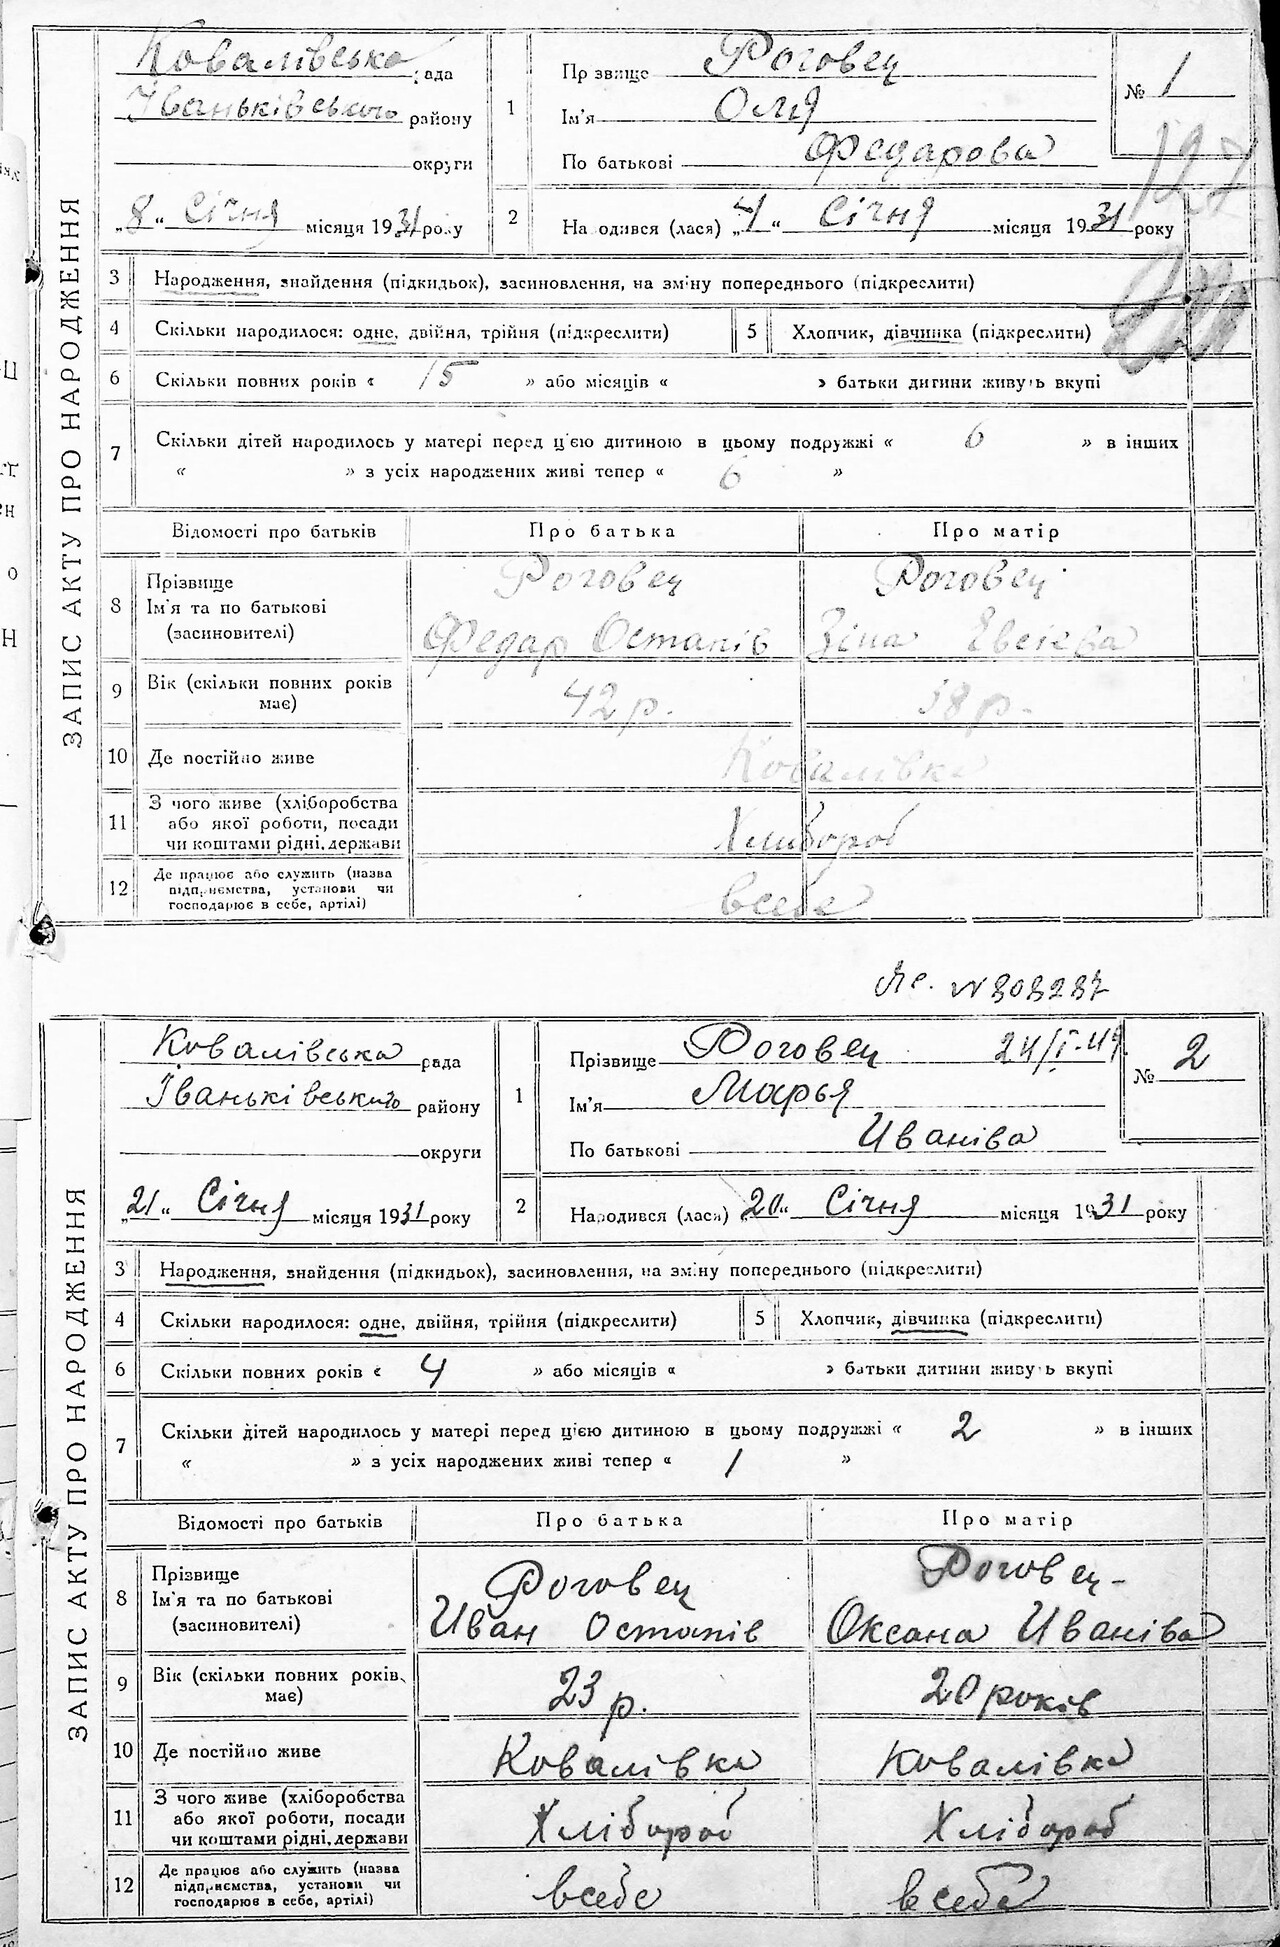 ЗАПИС АКТУ ПРО НАРОДЖЕННЯ
Ковалівська рада
Іваньківського району
округи
„8“ Січня місяця 1931 року
1
Прізвище Роговец
Ім'я Оля
По батькові Федарова
№ 1
127
2
Народився (лася) „4“ Січня місяця 1931 року
3 Народження, знайдення (підкидьок), засиновлення, на зміну попереднього (підкреслити)
4 Скільки народилося: одне, двійня, трійня (підкреслити) 5 Хлопчик, дівчинка (підкреслити)
6 Скільки повних років « 15 » або місяців « » батьки дитини живуть вкупі
7 Скільки дітей народилось у матері перед ц'єю дитиною в цьому подружжі « 6 » в інших
« » з усіх народжених живі тепер « 6 »
Відомості про батьків Про батька Про матір
8 Прізвище Роговец Роговец
Ім'я та по батькові Федар Остапів Зіна
(засиновителі)
9 Вік (скільки повних років має) 42 р. 38 р.
10 Де постійно живе Ковалівка
11 З чого живе (хліборобства
або якої роботи, посади Хлибороб
чи коштами рідні, держави
12 Де працює або служить (назва
підприємства, установи чи всебе
господарює в себе, артілі)
№303237
ЗАПИС АКТУ ПРО НАРОДЖЕННЯ
Ковалівська рада
Іваньківського району
округи
„21“ Січня місяця 1931 року
1
Прізвище Роговец 24/I-49
Ім'я Марья
По батькові Иваніва
№ 2
2
Народився (лася) „20“ Січня місяця 1931 року
3 Народження, знайдення (підкидьок), засиновлення, на зміну попереднього (підкреслити)
4 Скільки народилося: одне, двійня, трійня (підкреслити) 5 Хлопчик, дівчинка (підкреслити)
6 Скільки повних років « 4 » або місяців « » батьки дитини живуть вкупі
7 Скільки дітей народилось у матері перед ц'єю дитиною в цьому подружжі « 2 » в інших
« » з усіх народжених живі тепер « 1 »
Відомості про батьків Про батька Про матір
8 Прізвище Роговец Роговец-
Ім'я та по батькові Иван Остапів Оксана Иваніва
(засиновителі)
9 Вік (скільки повних років має) 23 р. 20 років
10 Де постійно живе Ковалівка Ковалівка
11 З чого живе (хліборобства
або якої роботи, посади Хлібороб Хлібороб
чи коштами рідні, держави
12 Де працює або служить (назва
підприємства, установи чи всебе всебе
господарює в себе, артілі)